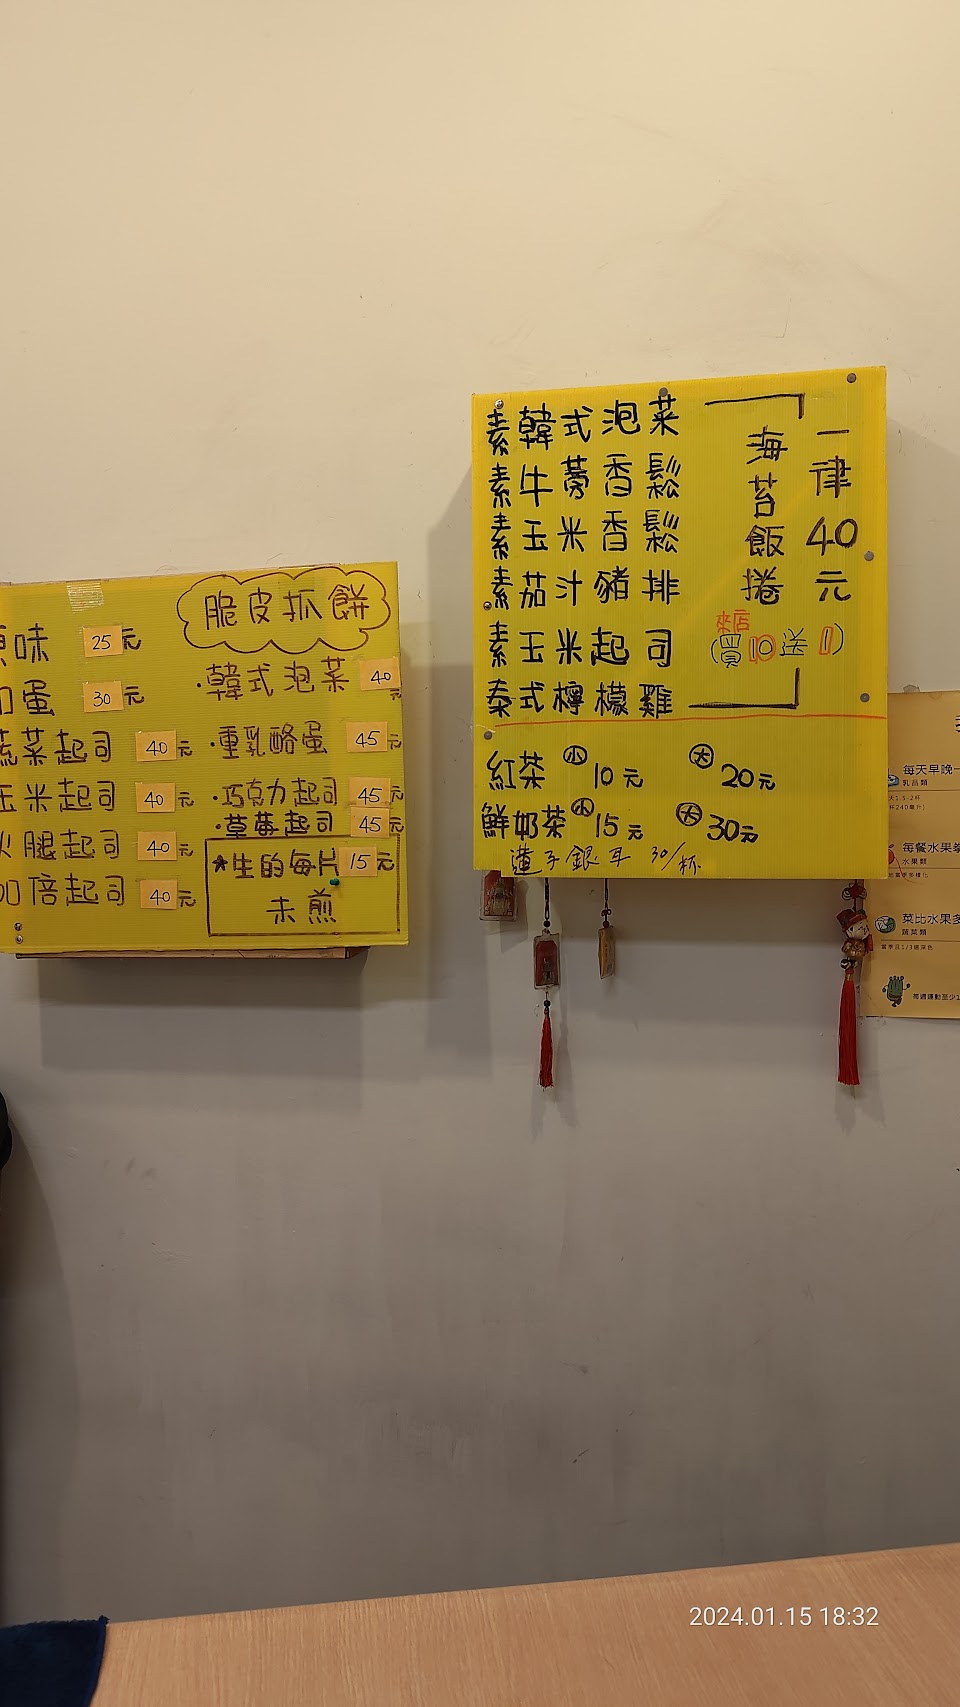 脆皮抓餅
味 25元
蛋 30元
蔬菜起司 40元
玉米起司 40元
火腿起司 40元
倍起司 40元
·韓式泡菜 40元
·重乳酪蛋 45元
·巧克力起司 45元
·草莓起司 45元
*生的每片15元
未煎
一律40元
海苔飯捲
來店
(買10送1)
素韓式泡菜
素牛蒡香鬆
素玉米香鬆
素茄汁豬排
素玉米起司
泰式檸檬雞
紅茶 小 10元 大 20元
鮮奶茶 小 15元 大 30元
蓮子銀耳 30/杯
每天早晚一
乳品類
每餐水果拳
水果類
菜比水果多
蔬菜類
當季且1/3選深色
每週運動至少1
2024.01.15 18:32